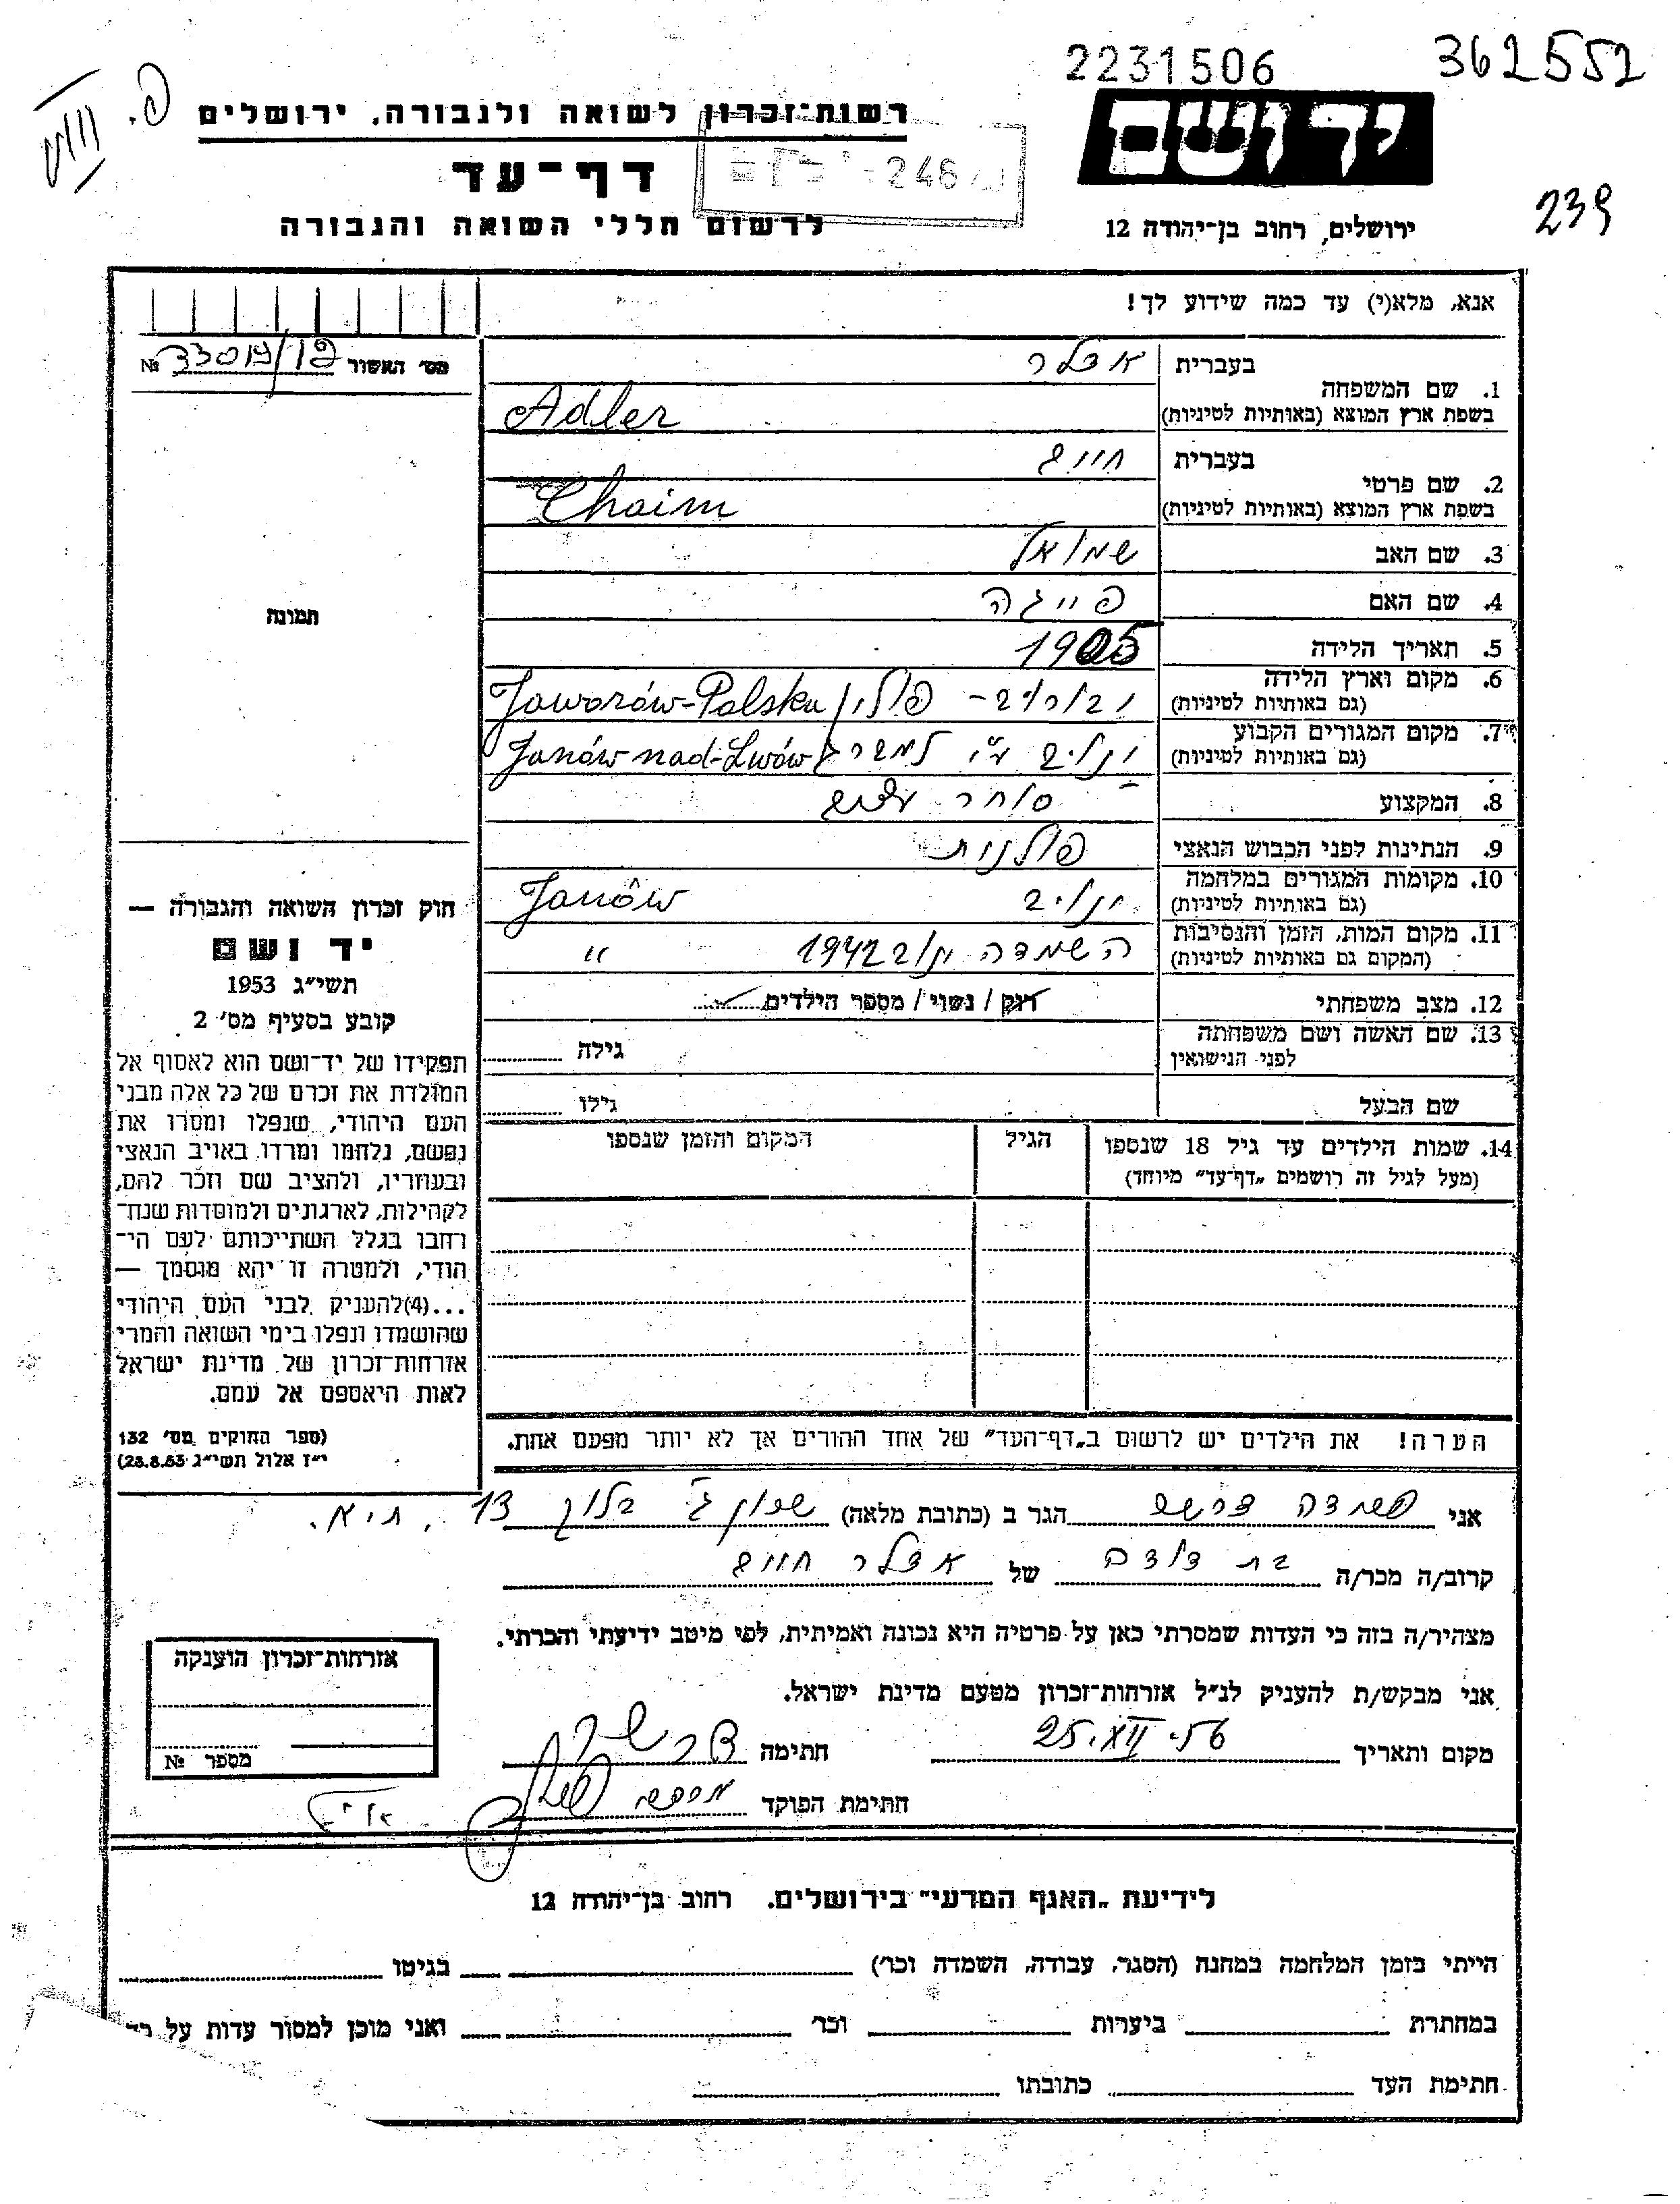 2231506
362552
רשות־זכרון לשואה ולגבורה, ירושלים
יד ושם
דף־עד
לרשום חללי השואה והגבורה
ירושלים, רחוב בן־יהודה 12
239
אנא, מלא(י) עד כמה שידוע לך!
מס׳ האשור №
1. שם המשפחה
בעברית אדלר
בשפת ארץ המוצא (באותיות לטיניות) Adler
2. שם פרטי
בעברית חיים
בשפת ארץ המוצא (באותיות לטיניות) Chaim
3. שם האב שמואל
4. שם האם פייגה
תמונה
5. תאריך הלידה 1905
6. מקום וארץ הלידה (גם באותיות לטיניות) יבורוב - פולין Jaworów-Polska
7. מקום המגורים הקבוע (גם באותיות לטיניות) ינוב ע״י למברג Janów nad-Lwów
8. המקצוע סוחר עצים
9. הנתינות לפני הכבוש הנאצי פולנית
10. מקומות המגורים במלחמה (גם באותיות לטיניות) ינוב Janów
11. מקום המות, הזמן והנסיבות (המקום גם באותיות לטיניות) השמדה 1942 "
12. מצב משפחתי רוק / נשוי / מספר הילדים
13. שם האשה ושם משפחתה לפני הנישואין גילה
שם הבעל גילו
14. שמות הילדים עד גיל 18 שנספו
(מעל לגיל זה רושמים „דף־עד״ מיוחד)
הגיל
המקום והזמן שנספו
חוק זכרון השואה והגבורה —
יד ושם
תשי״ג 1953
קובע בסעיף מס׳ 2
תפקידו של יד־ושם הוא לאסוף אל
המולדת את זכרם של כל אלה מבני
העם היהודי, שנפלו ומסרו את
נפשם, נלחמו ומרדו באויב הנאצי
ובעוזריו, ולהציב שם וזכר להם,
לקהילות, לארגונים ולמוסדות שנח־
רחבו בגלל השתייכותם לעם הי־
הודי, ולמטרה זו יהא מוסמך —
...(4)להעניק לבני העם היהודי
שהושמדו ונפלו בימי השואה והמרי
אזרחות־זכרון של מדינת ישראל
לאות היאספם אל עמם.
(ספר החוקים מס׳ 132
י״ז אלול תשי״ג 28.8.53)
הערה! את הילדים יש לרשום ב„דף־העד״ של אחד ההורים אך לא יותר מפעם אחת.
אני דרשר הגר ב (כתובת מלאה) שכון ג׳ בלוק 13, ת״א.
קרוב/ה מכר/ה בת דודם של אדלר חיים
מצהיר/ה בזה כי העדות שמסרתי כאן על פרטיה היא נכונה ואמיתית, לפי מיטב ידיעתי והכרתי.
אני מבקש/ת להעניק לנ״ל אזרחות־זכרון מטעם מדינת ישראל.
מקום ותאריך 25.XII.56 חתימה
חתימת הפוקד
אזרחות־זכרון הוענקה
מספר №
לידיעת „האגף המדעי״ בירושלים. רחוב בן־יהודה 12
הייתי בזמן המלחמה במחנה (הסגר, עבודה, השמדה וכו׳) בגיטו
במחתרת ביערות וכו׳ ואני מוכן למסור עדות על
חתימת העד כתובתו